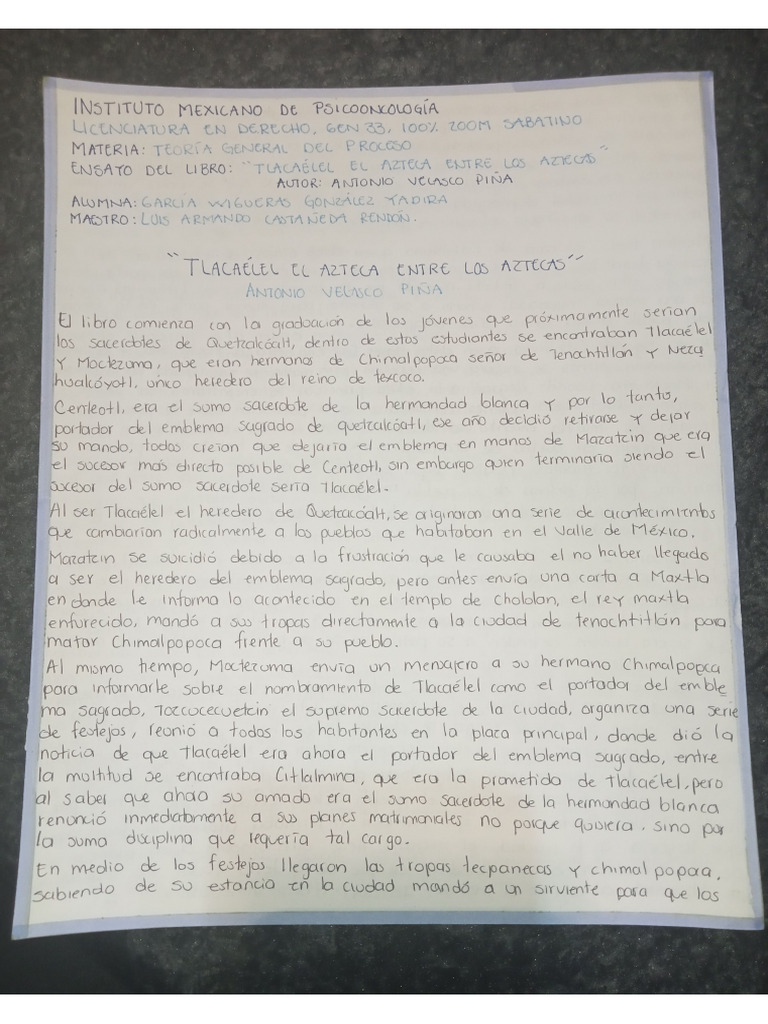 INSTITUTO MEXICANO DE PSICOONCOLOGÍA
LICENCIATURA EN DERECHO, GEN 33, 100% ZOOM SABATINO
MATERIA: TEORÍA GENERAL DEL PROCESO
ENSAYO DEL LIBRO: "TLACAÉLEL EL AZTECA ENTRE LOS AZTECAS"
AUTOR: ANTONIO VELASCO PIÑA
ALUMNA: GARCÍA WIGUERAS GONZÁLEZ YADIRA
MAESTRO: LUIS ARMANDO CASTAÑEDA RENDÓN.
"TLACAÉLEL EL AZTECA ENTRE LOS AZTECAS"
ANTONIO VELASCO PIÑA
El libro comienza con la graduación de los jóvenes que próximamente serían
los sacerdotes de Quetzalcóalt, dentro de estos estudiantes se encontraban Tlacaélel
Y Moctezuma, que eran hermanos de Chimalpopoca señor de Tenochtitlán y Neza
hualcóyotl, único heredero del reino de texcoco.
Centeotl, era el sumo sacerdote de la hermandad blanca y por lo tanto,
portador del emblema sagrado de quetzalcóatl, ese año decidió retirarse y dejar
su mando, todos creían que dejaría el emblema en manos de Mazatzin que era
el sucesor más directo posible de Centeotl, sin embargo quien terminaría siendo el
sucesor del sumo sacerdote sería Tlacaélel.
Al ser Tlacaélel el heredero de Quetzalcóalt, se originaron una serie de acontecimientos
que cambiarían radicalmente a los pueblos que habitaban en el Valle de México.
Mazatzin se suicidió debido a la frustración que le causaba el no haber llegado
a ser el heredero del emblema sagrado, pero antes envía una carta a Maxtla
en donde le informa lo acontecido en el templo de Chololan, el rey maxtla
enfurecido, mandó a sus tropas directamente a la ciudad de tenochtitlán para
matar Chimalpopoca frente a su pueblo.
Al mismo tiempo, Moctezuma envía un mensajero a su hermano Chimalpopca
para informarle sobre el nombramiento de Tlacaélel como el portador del emble
ma sagrado, Tozcucecuetzin el supremo sacerdote de la ciudad, organiza una serie
de festejos, reunió a todos los habitantes en la plaza principal, donde dió la
noticia de que Tlacaélel era ahora el portador del emblema sagrado, entre
la multitud se encontraba Citlalmina, que era la prometida de Tlacaélel, pero
al saber que ahora su amado era el sumo sacerdote de la hermandad blanca
renunció inmediatamente a sus planes matrimoniales no porque quisiera, sino por
la suma disciplina que requería tal cargo.
En medio de los festejos llegaron las tropas tecpanecas y chimalpopoca,
sabiendo de su estancia en la ciudad mandó a un sirviente para que los